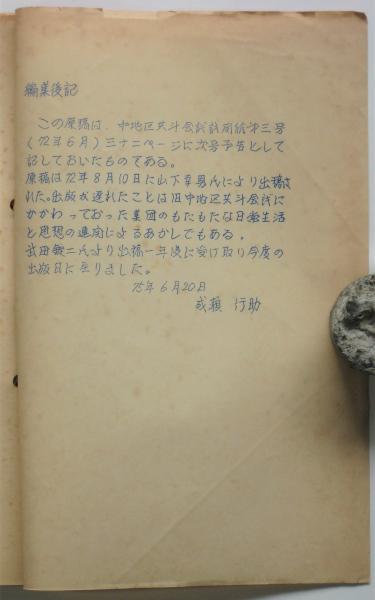 編集後記
この原稿は、中地区共斗会議討論紙第三号
(72年6月)三十二ページに次号予告として
記しておいたものである。
原稿は72年8月10日に山下幸男氏により出稿さ
れた。出版が遅れたことは旧中地区共斗会議に
かかわっておった集団のもたもたな日常生活
と思想の進度によるあかしでもある。
武田敏二氏より出稿一年後に受け取り今度の
出版日に至りました。
75年6月20日
成瀬 行助